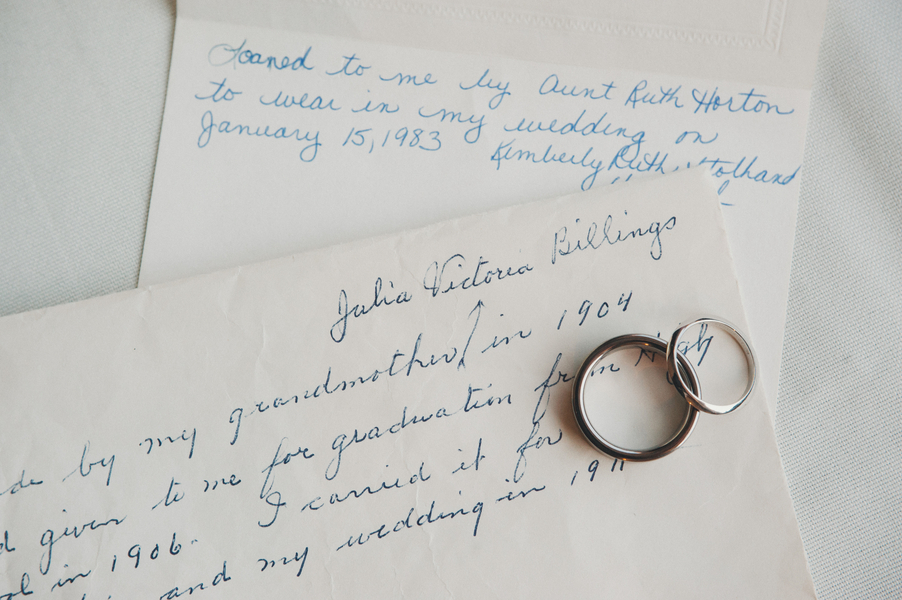 Loaned to me by Aunt Ruth Horton
to wear in my wedding on
January 15, 1983
Kimberly Ruth Holland
Julia Victoria Billings
de by my grandmother in 1904
d given to me for graduation from High
ol in 1906. I carried it for
and my wedding in 1911